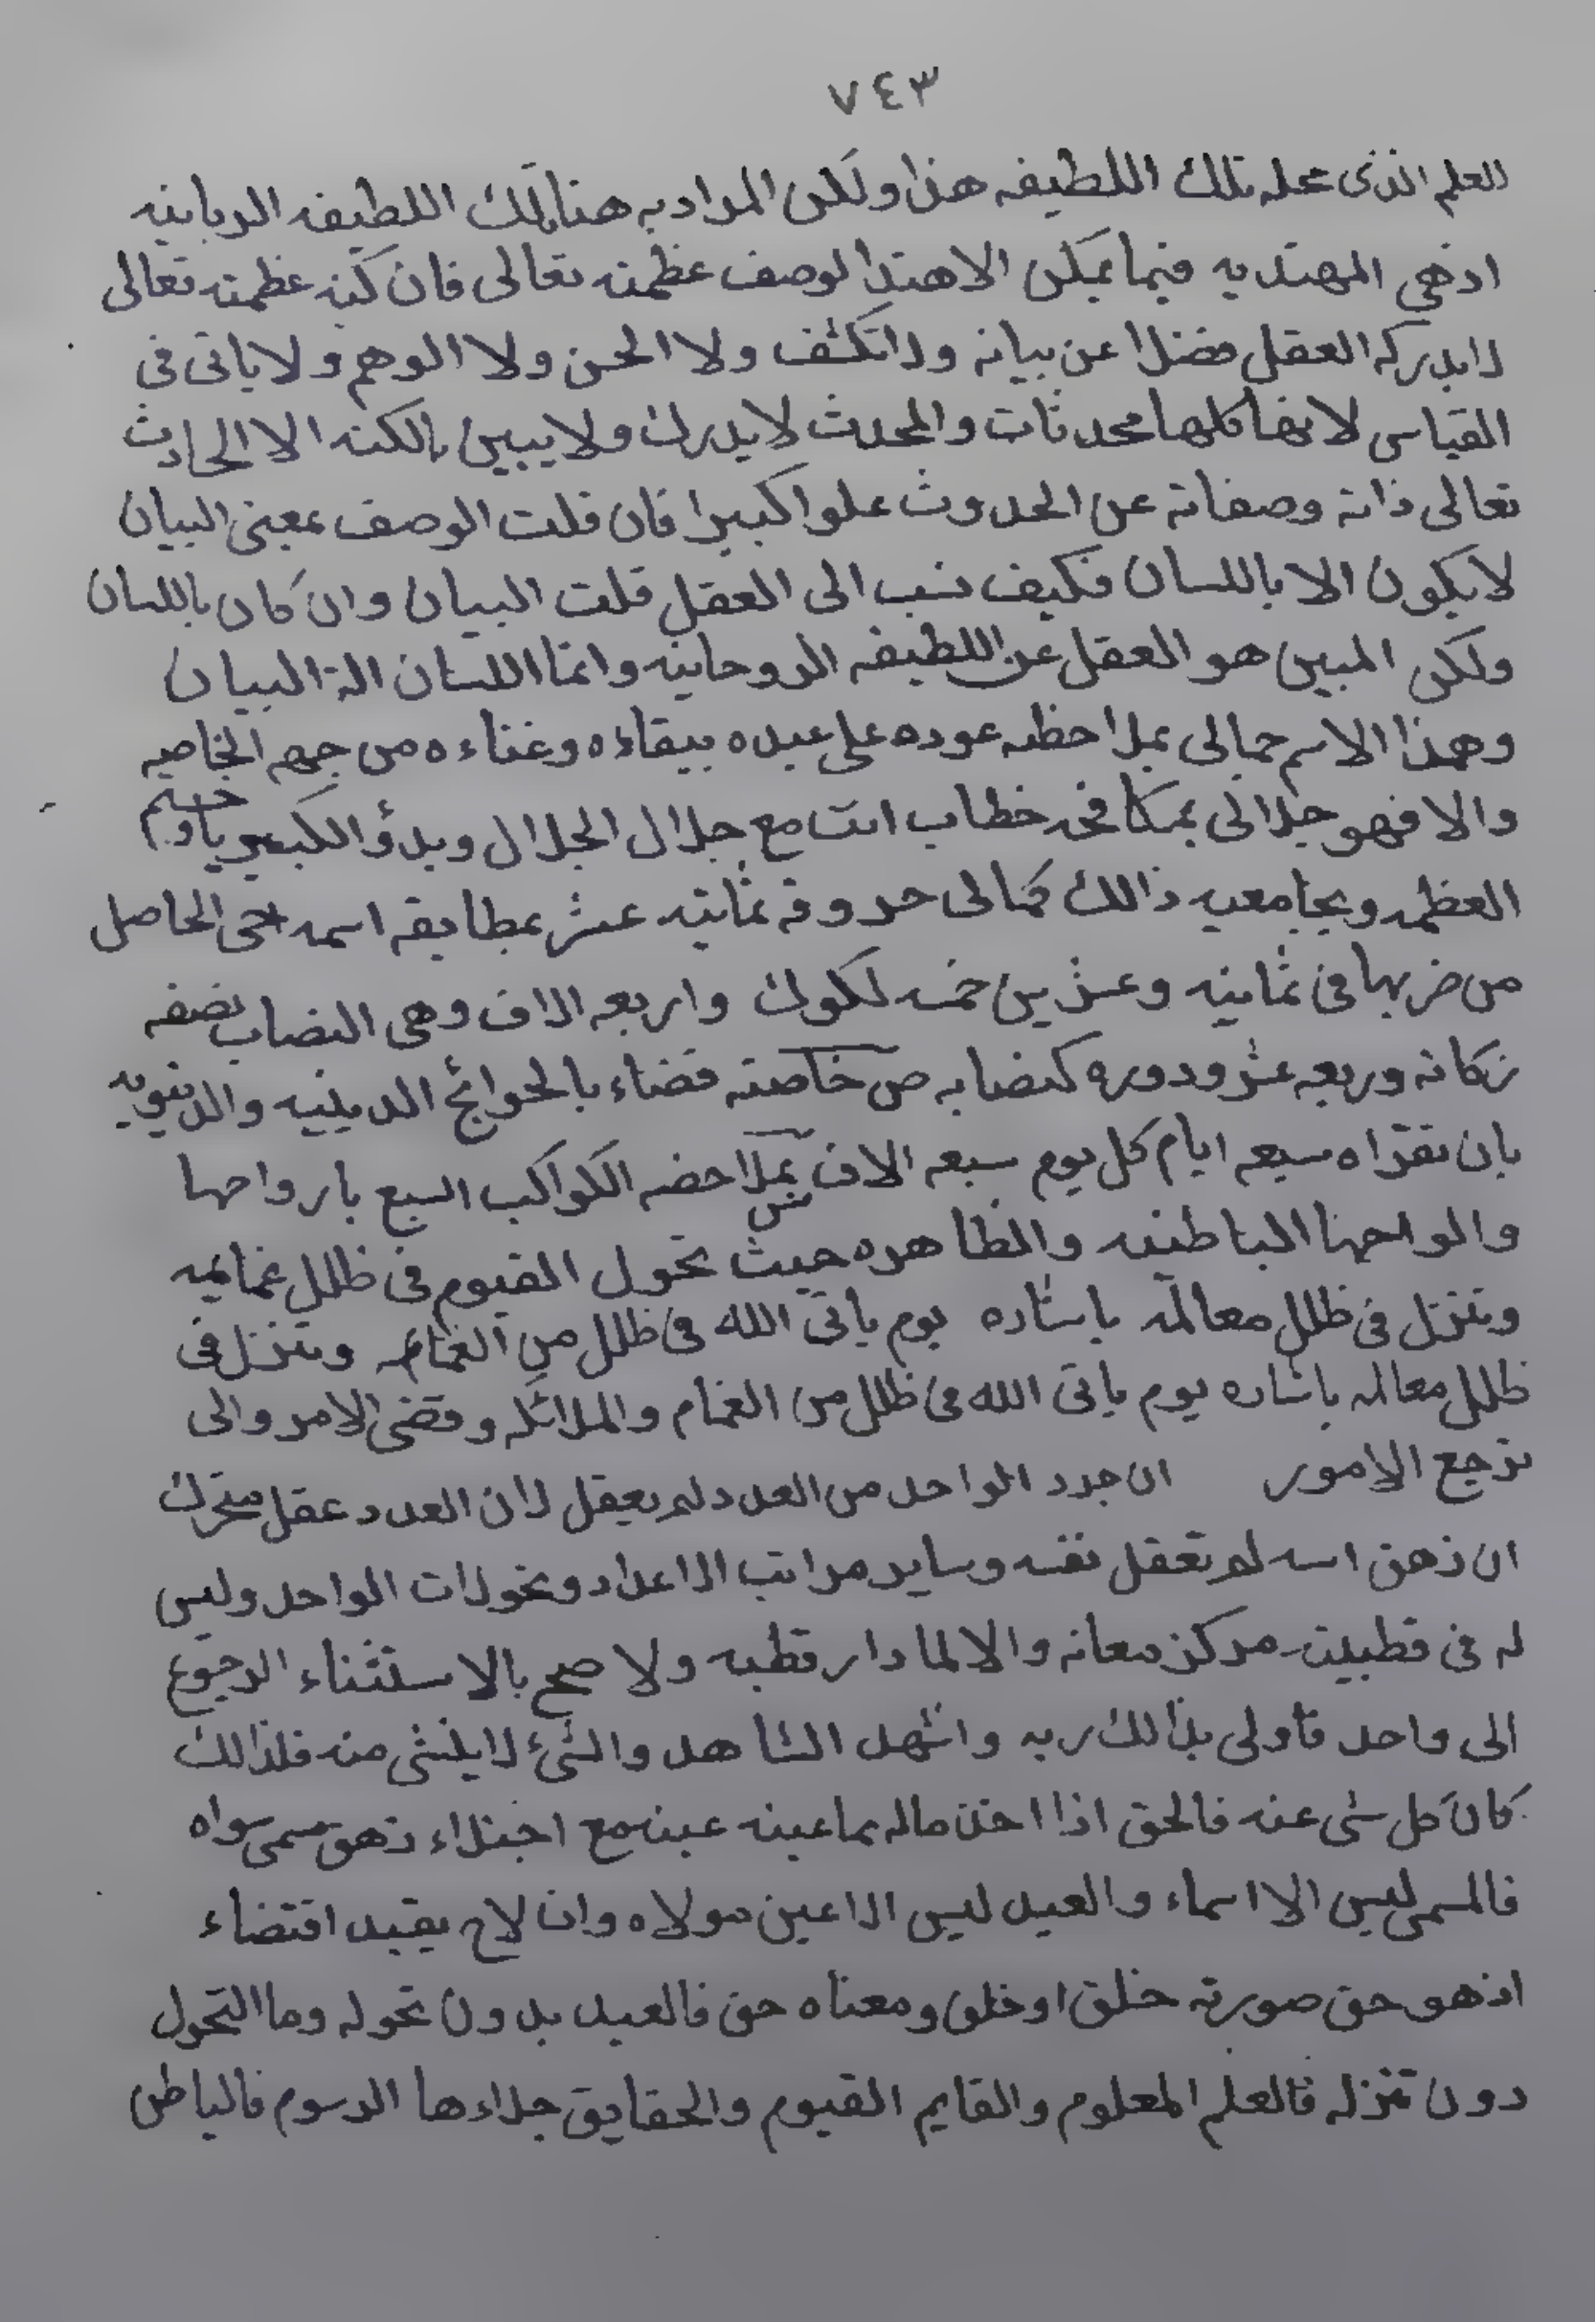 ٧٤٣
العلم الذى محله تلك اللطيفه هذا ولكن المراد به هنا تلك اللطيفه الربانيه
اذ هي المهتد به فيما يمكن الاهتدا لوصف عظمته تعالى فان كنه عظمته تعالى
لا يدركه العقل فضلا عن بيانه ولا تكشف ولا الحس ولا الوهم ولا ياتى فى
القياس لانها كلها محدثات والمحدث لا يدرك ولا يبين بالكنه الا الحادث
تعالى ذاته وصفاته عن الحدوث علوا كبيرا فان قلت الوصف بمعنى البيان
لا يكون الا باللسان فكيف نسب الى العقل قلت البيان وان كان باللسان
ولكن المبين هو العقل عن اللطيفه الروحانيه وانما اللسان الة البيان
وهذا الاسم جمالى بملاحظه عوده على عبده ببقاءه وغناءه من جهه الخاصه
والا فهو جلالى بمكافحه خطاب انت مع جلال الجلال وبدؤ الكبرياء
العظمه وبجامعيه ذالك كمالى حروفه ثمانيه عشر بمطابقه اسمه حى الحاصل
من ضربها فى ثمانيه وعشرين خمسه لكوك واربعه الاف وهى النصاب نصفه
زكاته وربعه عشر ودوره كنصابه ص خاصته قضاء بالحوائج الدينيه والدنيويه
بان تقراه سبعه ايام كل يوم سبعه الاف بملاحضه الكواكب السبع بارواحها
والواحها الباطنه والظاهره حيث تحول القيوم فى ظلل غمايمه
وتنزل فى ظلل معالمه باشاره يوم ياتى الله فى ظلل من الغمام وتنزل فى
ظلل معالمه باشاره يوم ياتى الله فى ظلل من الغمام والملائكه وقضى الامر والى
ترجع الامور ان جرد الواحد من العدد لم يعقل لان العدد عقل متحرك
ان ذهن اسه لم تعقل نفسه وساير مراتب الاعداد وتحولات الواحد وليس
له فى قطبيته مركز معانه والا لما دار قطبه ولا صح بالاستثناء الرجوع
الى واحد فأولى بذالك ربه واشهد الشاهد والشئ لا ينثنى منه فلذالك
كان كل شى عنه فالحق اذا اخذ ماله بما عينه عينه مع اجتلاء زهق مسمى سواه
فالمسمى ليس الا اسماء والعبد ليس الا عين مولاه وان لاح بقيد اقتضاء
اذ هو حق صورته خلق او خلق ومعناه حق فالعبد بدون تحوله وما التحول
دون تنزله فالعلم المعلوم والقايم القيوم والحقايق جلاءها الرسوم فالباطن